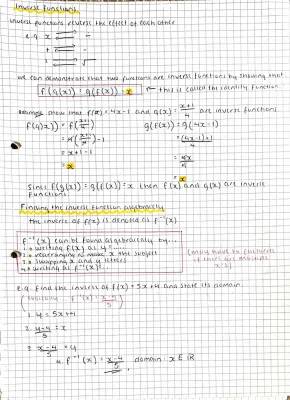 Inverse Functions
Inverse functions reverse the effect of each other
e.g. x ÷
+ −
² √
we can demonstrate that two functions are inverse functions by showing that
f(g(x)) = g(f(x)) = x this is called the identity function
Example show that f(x) = 4x-1 and g(x) = x+1/4 are inverse functions
f(g(x)) = f(x+1/4) g(f(x)) = g(4x-1)
= 4(x+1/4)-1 = (4x-1)+1/4
= x+1-1 = 4x/4
= x = x
Since f(g(x)) = g(f(x)) = x then f(x) and g(x) are inverse
functions.
Finding the inverse function algebraically
the inverse of f(x) is denoted as f⁻¹(x)
f⁻¹(x) can be found algebraically by...
1. writing f(x) as y = .....
2. rearranging to make x the subject
3. swapping x and y letters
4. writing as f⁻¹(x) ...
(may have to factorise
if there are multiple
x's)
e.g. Find the inverse of f(x) = 5x+4 and state its domain
f⁻¹(x) = x-4/5
1. y = 5x+4
2. y-4/5 = x
3. x-4/5 = y
4. f⁻¹(x) = x-4/5 domain: x ∈ ℝ